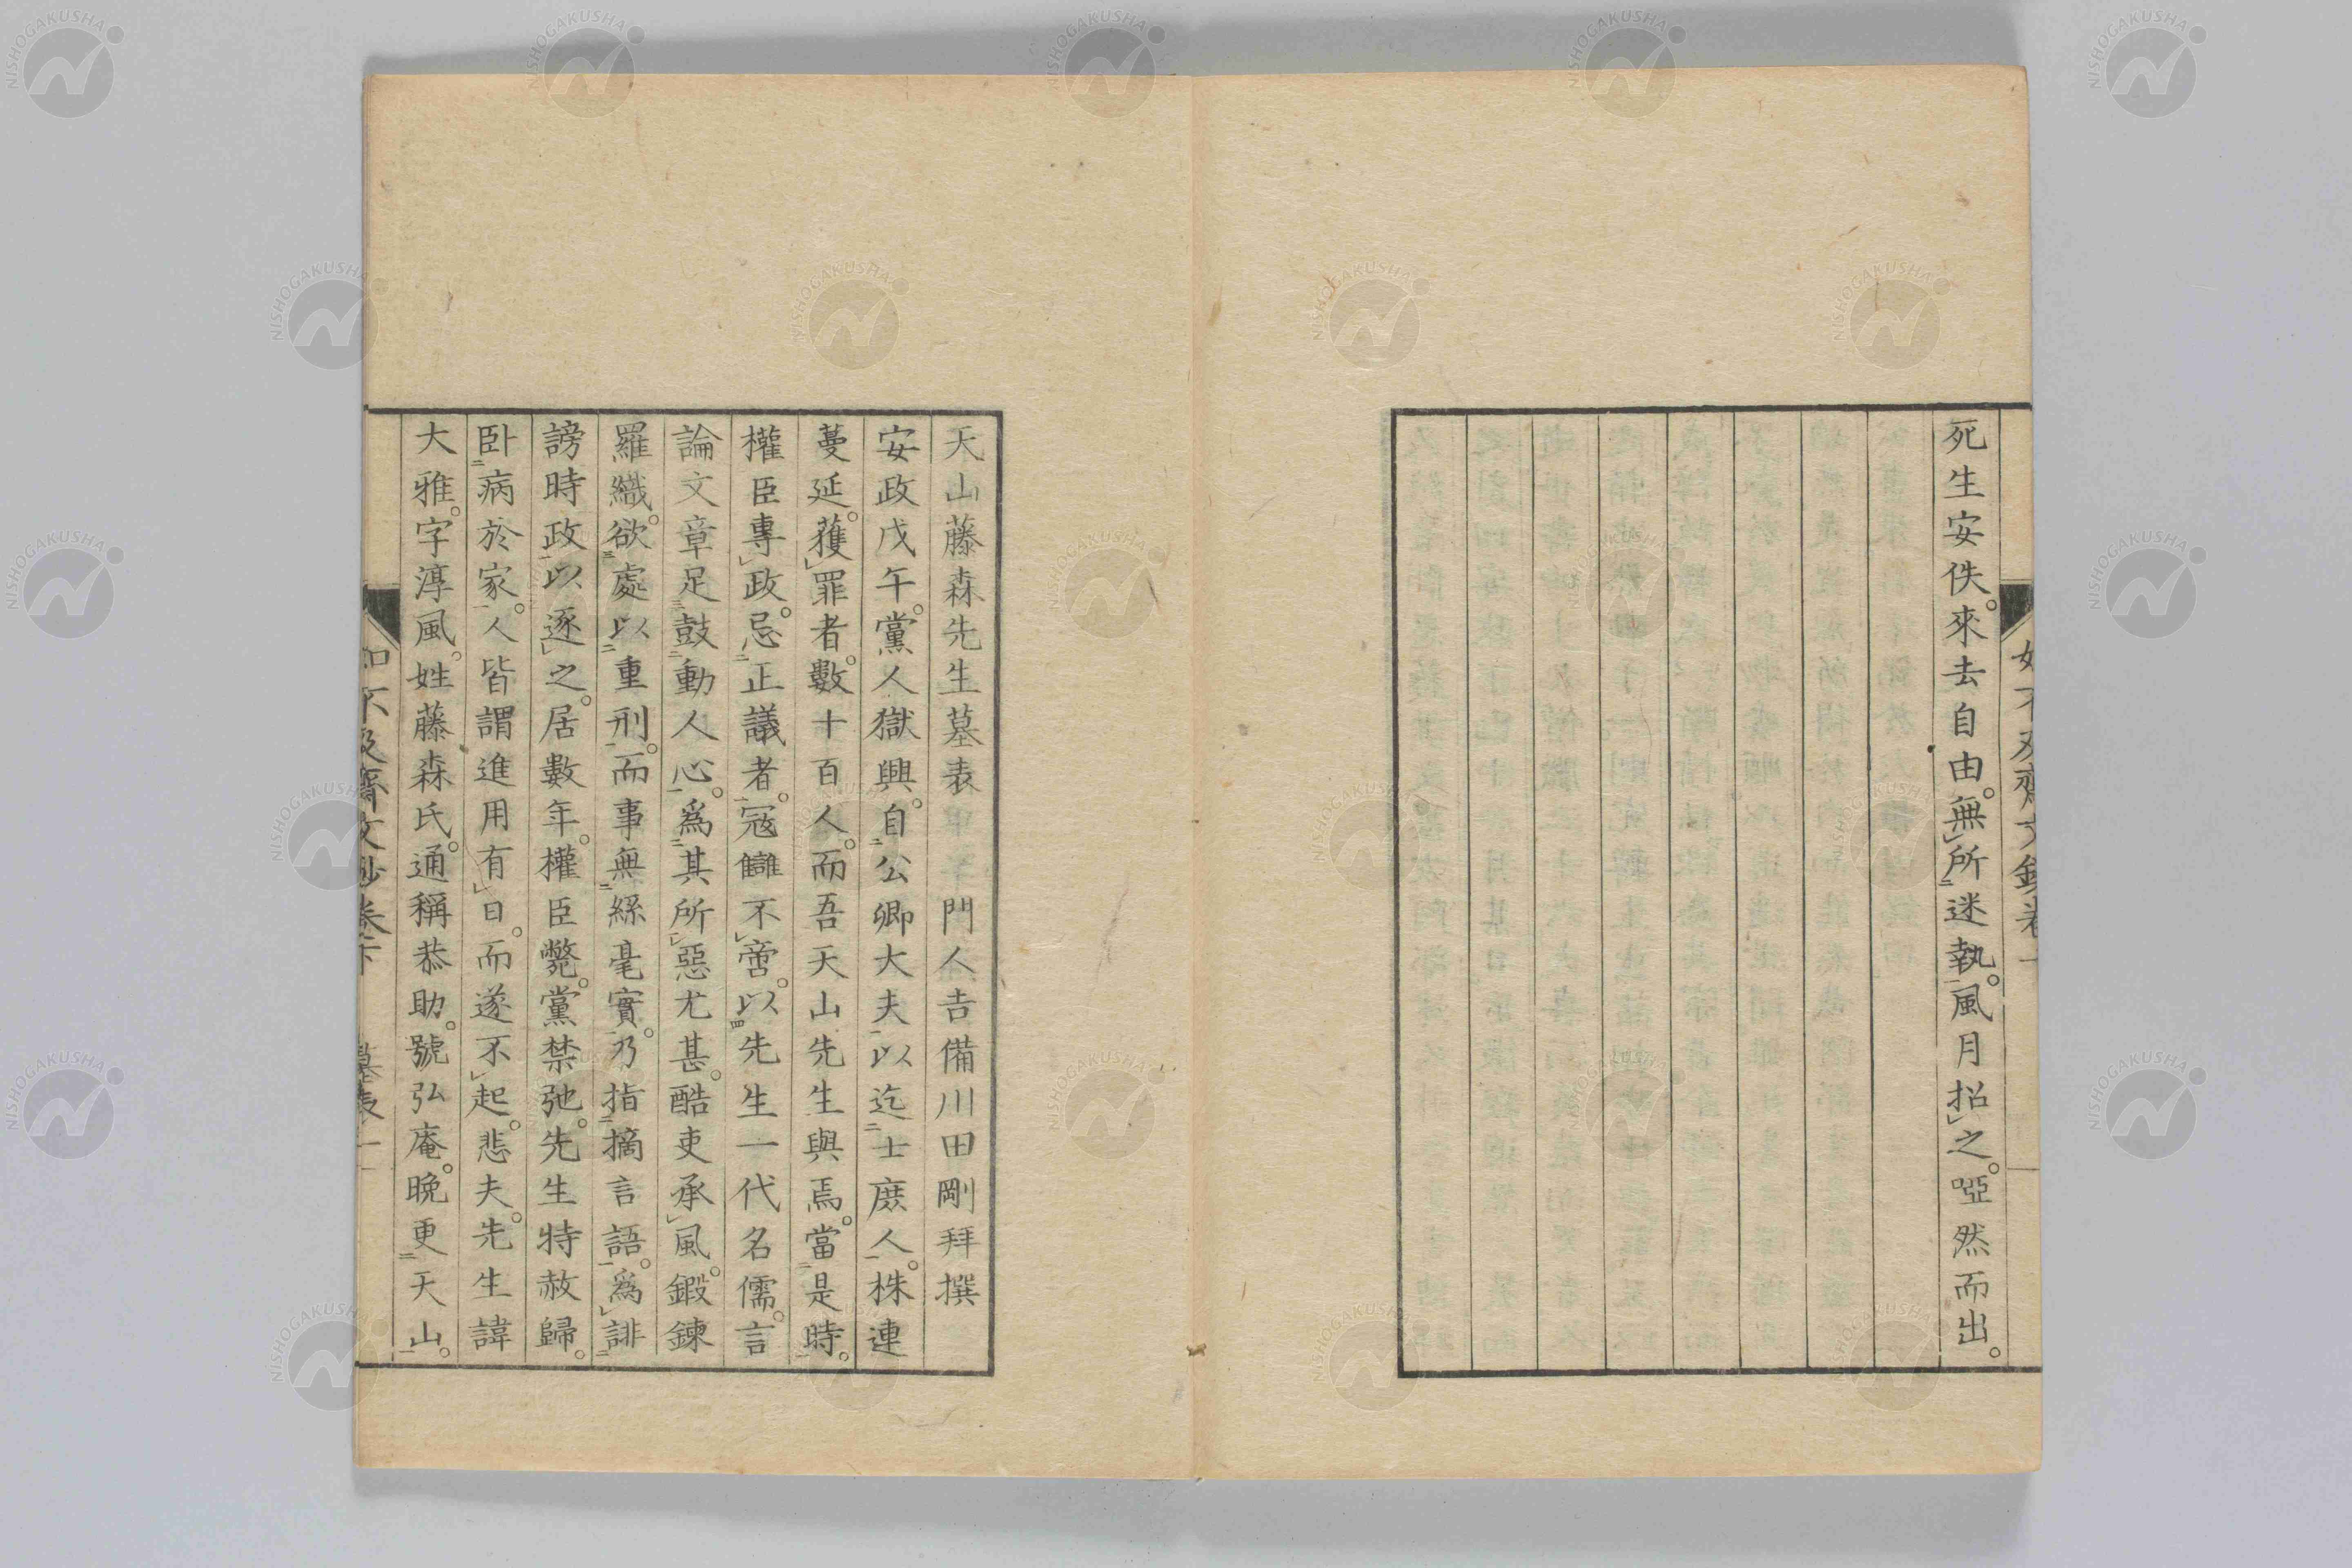 死生安佚。來去自由。無㆑所㆓迷執㆒。風月招㆑之。啞然而出。
天山藤森先生墓表 門人吉備川田剛拜撰
安政戊午。黨人獄興。自㆓公卿大夫㆒以迄㆓士庶人㆒。株連
蔓延。獲㆑罪者。數十百人。而吾天山先生與焉。當㆓是時㆒。
權臣專㆑政。忌㆓正議者㆒。寇讎不㆑啻。以㆕先生一代名儒。言
論文章足㆔鼓㆓動人心㆒。爲㆓其所㆑惡尤甚。酷吏承㆑風。鍛鍊
羅織。欲㆔處以㆓重刑㆒。而事無㆓絲毫實㆒。乃指㆓摘言語㆒。爲㆑誹㆓
謗時政㆒以逐㆑之。居數年。權臣斃。黨禁弛。先生特赦歸。
臥㆓病於家㆒。人皆謂進用有㆑日。而遂不㆑起。悲夫。先生諱
大雅。字淳風。姓藤森氏。通稱恭助。號弘庵。晚更㆓天山㆒。
如不及齋文鈔卷下 墓表 一
NISHOGAKUSHA